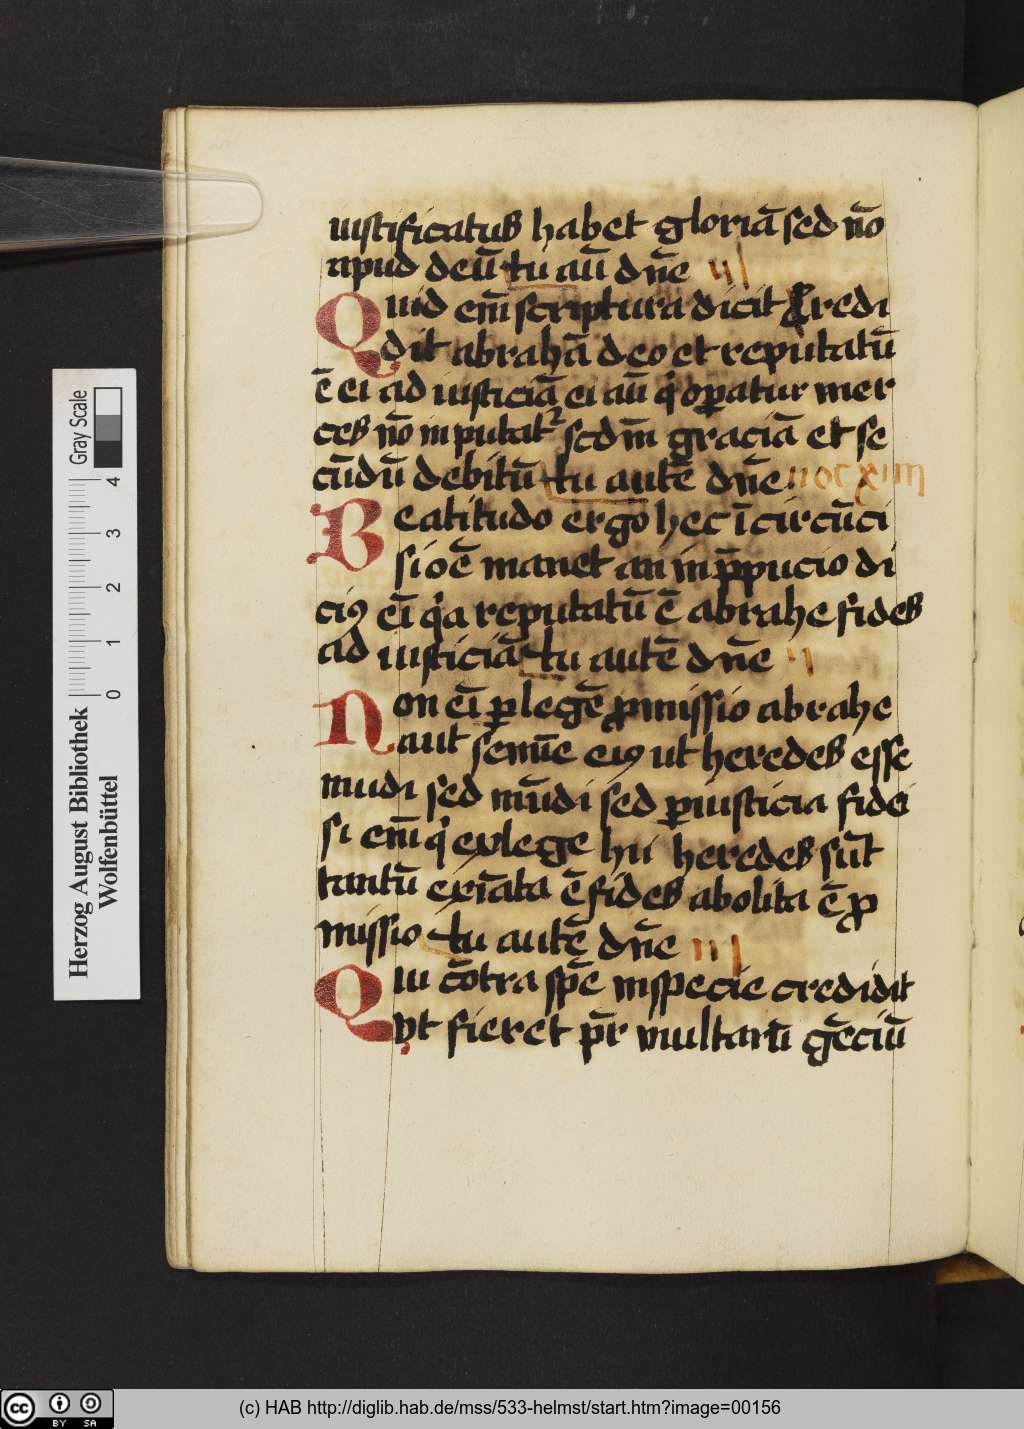 iustificatus habet gloriā sed nō
apud deū tu aū dn̄e iij
Quid em̄ scriptura dicit Credi
dit abrahā deo et reputatū
ē ei ad iusticiā ei aū qͥ opatur mer
ces nō inputat² scdm̄ graciā et se
cūdū debitū tu autē dn̄e
Beatitudo ergo hec ī circūci
sioē manet an in p̄pucio di
ciꝯ eī qͥa reputatū ē abrahe fides
ad iusticiā tu autē dn̄e ij
Non eī ꝑ legē ꝓmissio abrahe
aut semīe eiꝯ ut heredes esse
mudi sed mūdi sed ꝑ iusticia fidei
si em̄ qͥ ex lege hii heredes sūt
tantū exīata ē fides abolita ē ꝓ
missio tu autē dn̄e iij
Qui cōtra spē in specie credidit
vt fieret pr̄ multarū gēciū
Gray Scale
0 1 2 3 4
Herzog August Bibliothek
Wolfenbüttel
cc BY SA
(c) HAB http://diglib.hab.de/mss/533-helmst/start.htm?image=00156